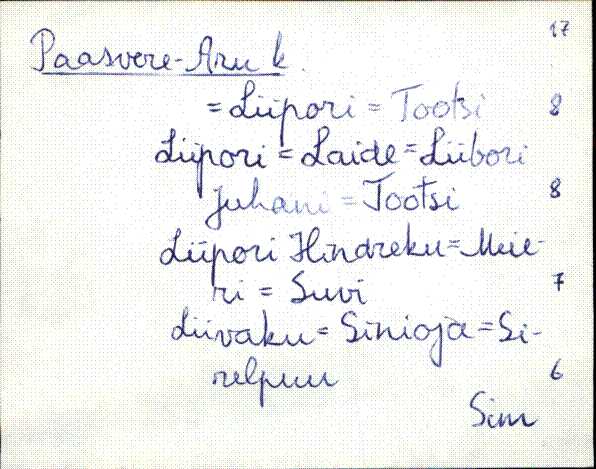 17
Paasvere-Aru k.
= Liipori = Tootsi 8
Liipori = Laide = Liibori
Juhani = Tootsi 8
Liipori Hindreku = Meie-
ri = Suvi 7
Liivaku = Sinioja = Si-
relpuu 6
Sim